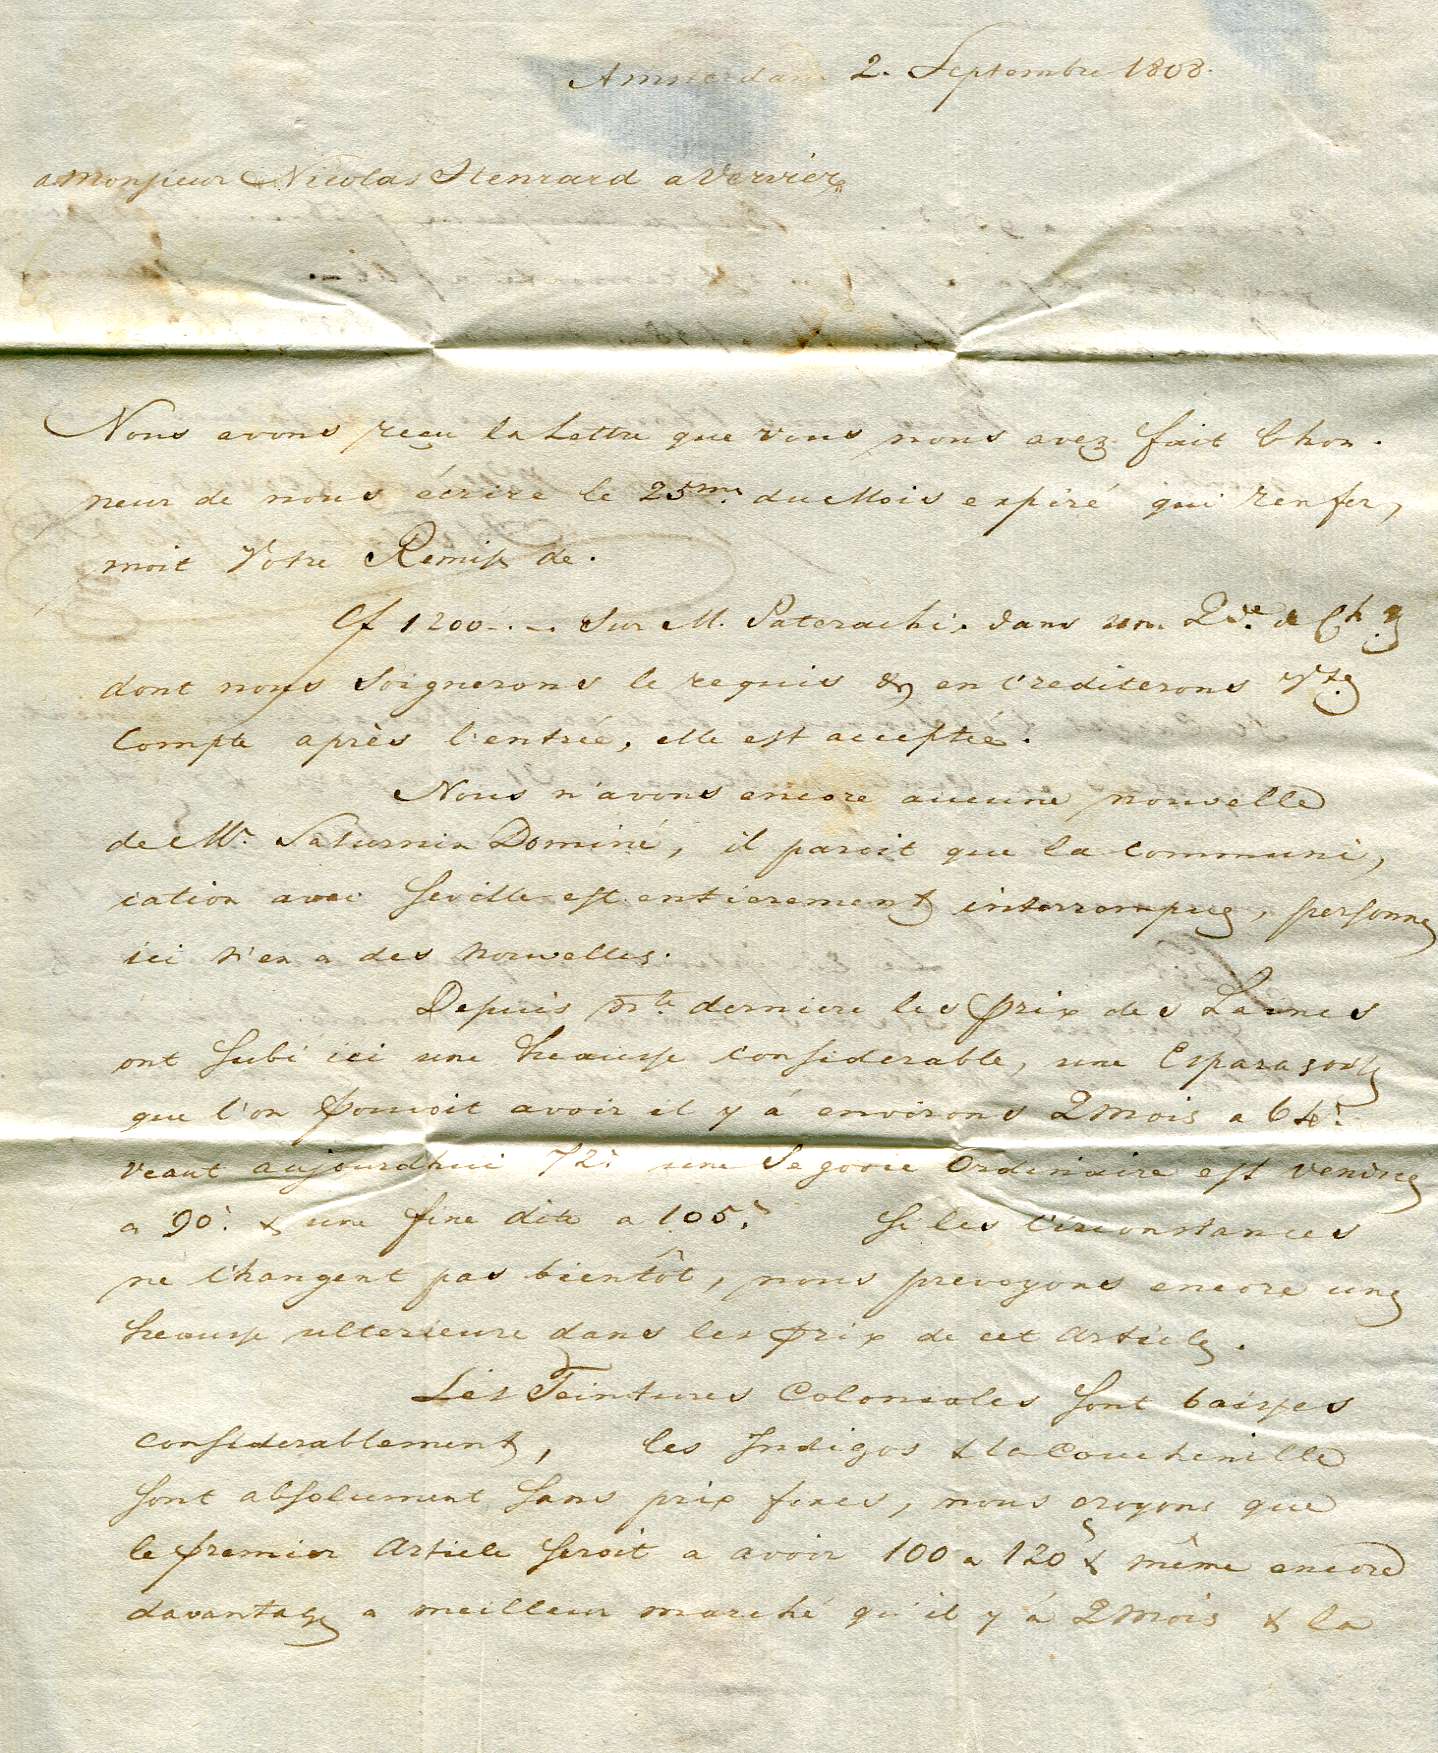 Amsterdam 2. Septembre 1808.
a Monsieur Nicolas Stenrard a Vervier
Nous avons reçu la Lettre que vous nous avez fait l'hon-
neur de nous écrire le 25me. du Mois expiré qui renfer,
moit Votre Remise de.
f 1200.-.- Sur M. Paterachi. dans une
dont nous soignerons le requis & en Crediterons Vte
Compte après l'entrée, elle est acceptée.
Nous n'avons encore aucune nouvelle
de Mr. Saturnin Dominé, il paroit que la communi,
cation avec Seville est entierement interrompue, personne
ici n'en a des nouvelles.
Depuis nte. derniere les prix des Laines
ont subi ici une heausse considerable, une Espara sorte
que l'on pouvoit avoir il y á environs 2 Mois a 64s.
veaut aujourdhui 72s. une Segovie Ordinaire est vendue
a 90s. & une fine dite a 105s. Si les Circonstances
ne Changent pas bientôt, nous prevoyons encore une
heausse ulterieure dans les prix de cet Article.
Les Teintures Coloniales sont baisses
considerablement, les Indigos & la Couchenille
sont absolument sans prix fixes, nous croyons que
le premier Article seroit a avoir 100 a 120s & même encore
davantage a meilleur marché qu'il y á 2 Mois & la